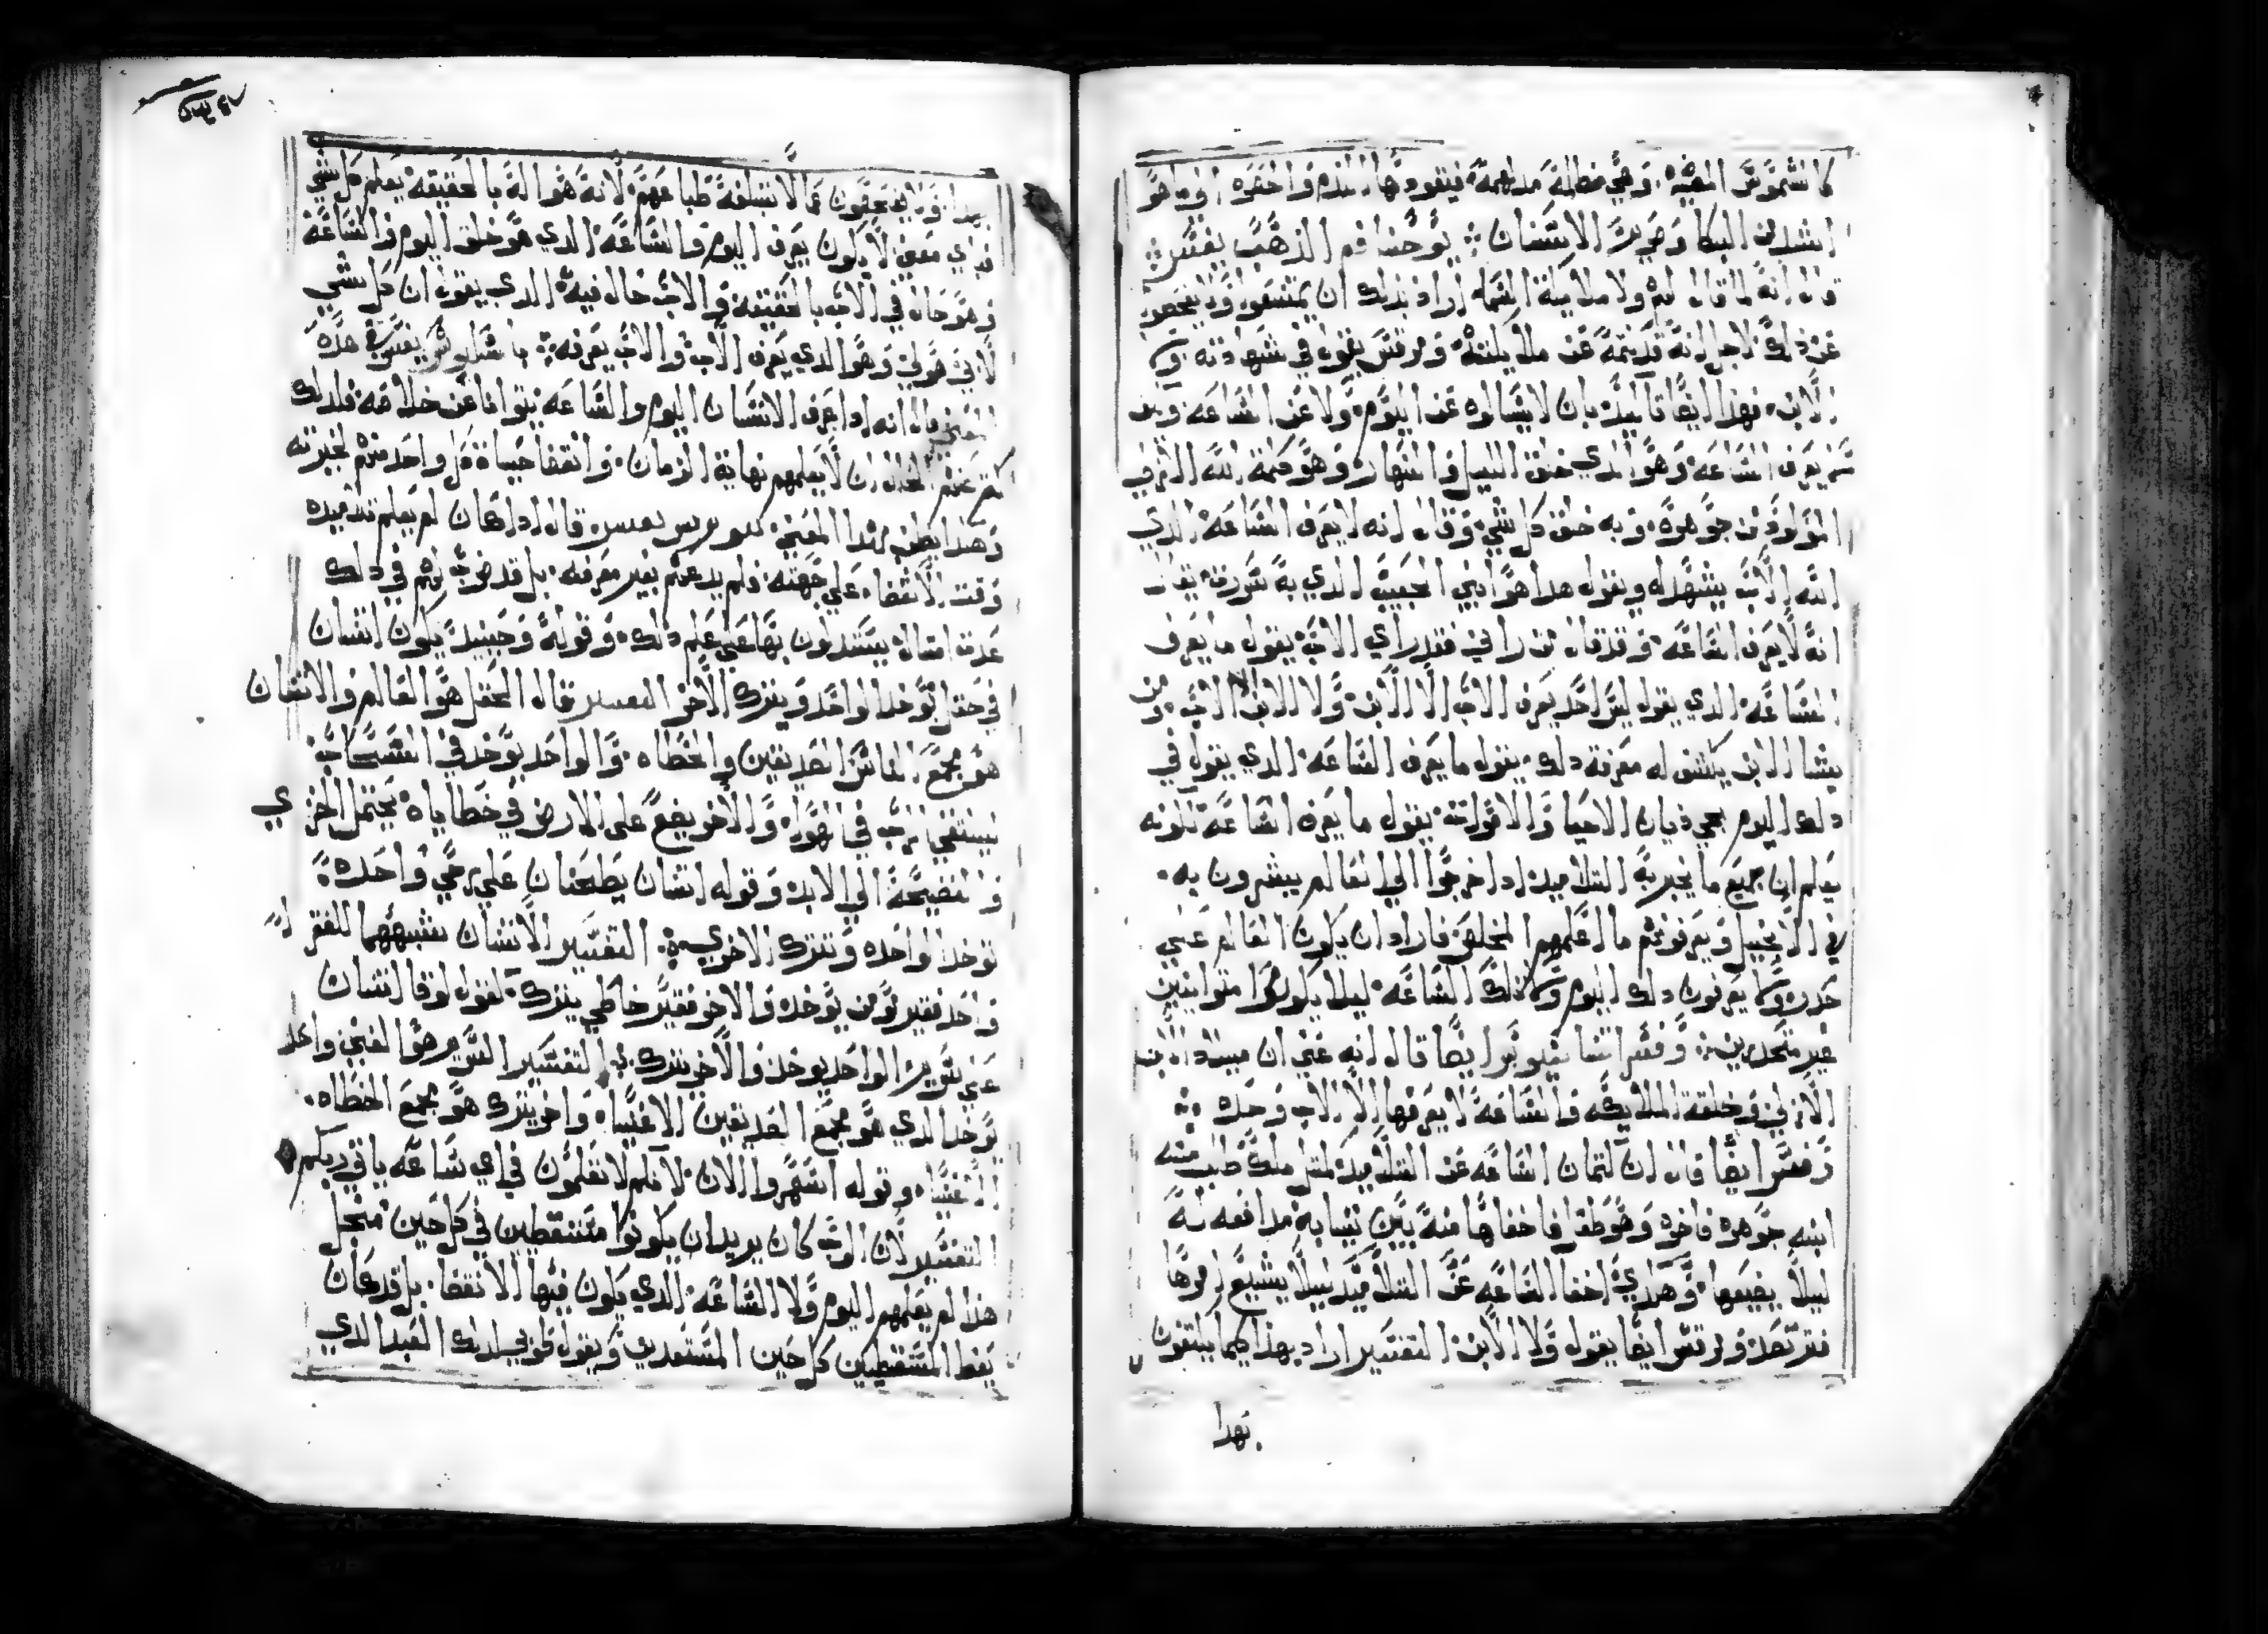 كالشموس المضيه. وهي مظلمة مدلهمة فيقودها الندم والحقره الي ماهو
اشد من البكا وصرير الاسنان ❖ يوحنا فم الذهب يفسر ❖
قال انه لما قال لهم ولا ملايكة السما اراد بذلك ان
عن ذلك لاجل انه قد كتمه عن ملايكته ومرقس يقول في شهادته ولا
الابن. فهذا ايضا قاله بان لا يسالوه عن اليوم ولا عن الساعه ومن
يعرف الساعه وهو الدي خلق الليل والنهار وهو كلمة الله الازلي
المولود من جوهره وبه خلق كل شي وقال انه لا يعرف الساعه الدي
الله الاب يشهد له ويقول هدا هو ابني الحبيب الدي به سررت يقال
انه لا يعرف الساعه وقد قال من راني فقد راي الاب يقول ما يعرف
الساعه الدي يقول ليس احد يعرف الاب الا الابن ولا الابن الا الاب ومن
يشا الابن يكشف له معرفة دلك يقول ما يعرف الساعه الدي يقول في
دلك اليوم يجي ديان الاحيا والاموات يقول ما يعرف الساعه لكونه
يعلم ان جميع ما يخبر به التلاميد ادا خرجوا الي العالم يبشرون به.
في الانجيل ويعرفونهم ما اعلمهم المخلص فاراد ان يكون العالم علي
حدر ولا يعرفون دلك اليوم ولا تلك الساعه ليلا يكونوا متوانيين
غير متحدرين ❖ وفسر ايضا قال انه عني ان ميلاد الابن
الازلي وخلقة الملايكه والساعه لا يعرفها الا الاب وحده ❖
وفسر ايضا قال ان كتمان الساعه عن التلاميد كمتل ملك طلب منه
ابنه جوهره فاخره وهو طفل فاخفاها منه بين تيابه مدافعه له
ليلا يضيعها وهكدي اخفا الساعه عن التلاميد ليلا يشيع امرها
ومرقس ايضا يقول ولا الابن التفسير اراد بهدا كيما يكتفون
بهدا
بهدا ولا يفحصون عما لا تبلغه طباعهم لانه هو اله بالحقيقه يعلم كل شي
فباي معني لا يكون يعرف اليوم والساعه الدي هو خلق اليوم والساعه
وهو حال في الاب بالحقيقه والاب حال فيه الدي يقول ان كل شي
لابي هو لي وهو الدي يعرف الاب والاب يعرفه ❖ باسيليوس يفسر هده
المعني قال انه ادا عرف الانسان اليوم والساعه يتوانا عن خلاصه فلدلك
كتم عنهم لكيلا لا يعلمهم نهاية الزمان. وانقضا حياة كل واحد منهم لخبرته
وهدا يطلب بهدا المعني يفسر قال ادا كان لم يعلم تلاميده
وقت الانقضا علي جهته فلم يدعهم بغير معرفه بل قد ضرب لهم في دلك
عدة امتال يستدلون بها علي علم دلك وقوله وحينيد يكون اتنان
في حقل يوخد الواحد ويترك الاخر التفسير قال الحقل هو العالم والاتنان
هو مجمع الناس الصديقين والخطاه والواحد يوخد في السحاب
ليستقي الرب في الهوا والاخر يضع علي الارض في خطاياه يحتمل الخزي
والفضيحة الي الابد وقوله اتنتان يطحنان علي رحي واحده ❖
توخد الواحده وتترك الاخري ❖ التفسير الاتنتان يشبههما للفقرا
واحد فقير مومن يوخد والاخر فقير خاطي يترك لقول لوقا اتنان
علي سرير الواحد يوخد والاخر يترك ❖ التفسير السرير هو الغني واحد
يوخد الدي هو مجمع الصديقين الاغنياء واخر يترك هو مجمع الخطاه
الاغنيا. وقوله اسهروا الان لانكم لا تعلمون في اي ساعه ياتي ربكم ❖
التفسير لان الرب كان يريد ان يكونوا متيقظين في كل حين من اجل
هدا لم يعلمهم اليوم ولا الساعه الدي يكون فيها الانقضا. بل قد كان
يعظ المتيقظين كل حين المستعدين ويقول طوبي لدلك العبد الدي